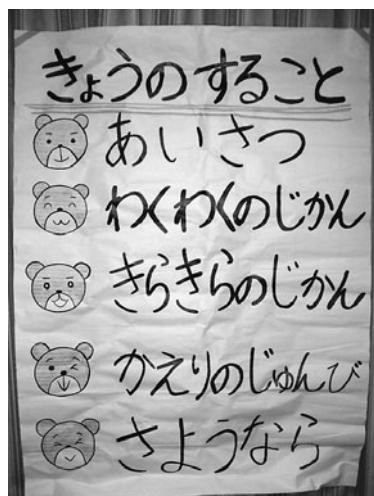 きょうのすること
あいさつ
わくわくのじかん
きらきらのじかん
かえりのじゅんび
さようなら